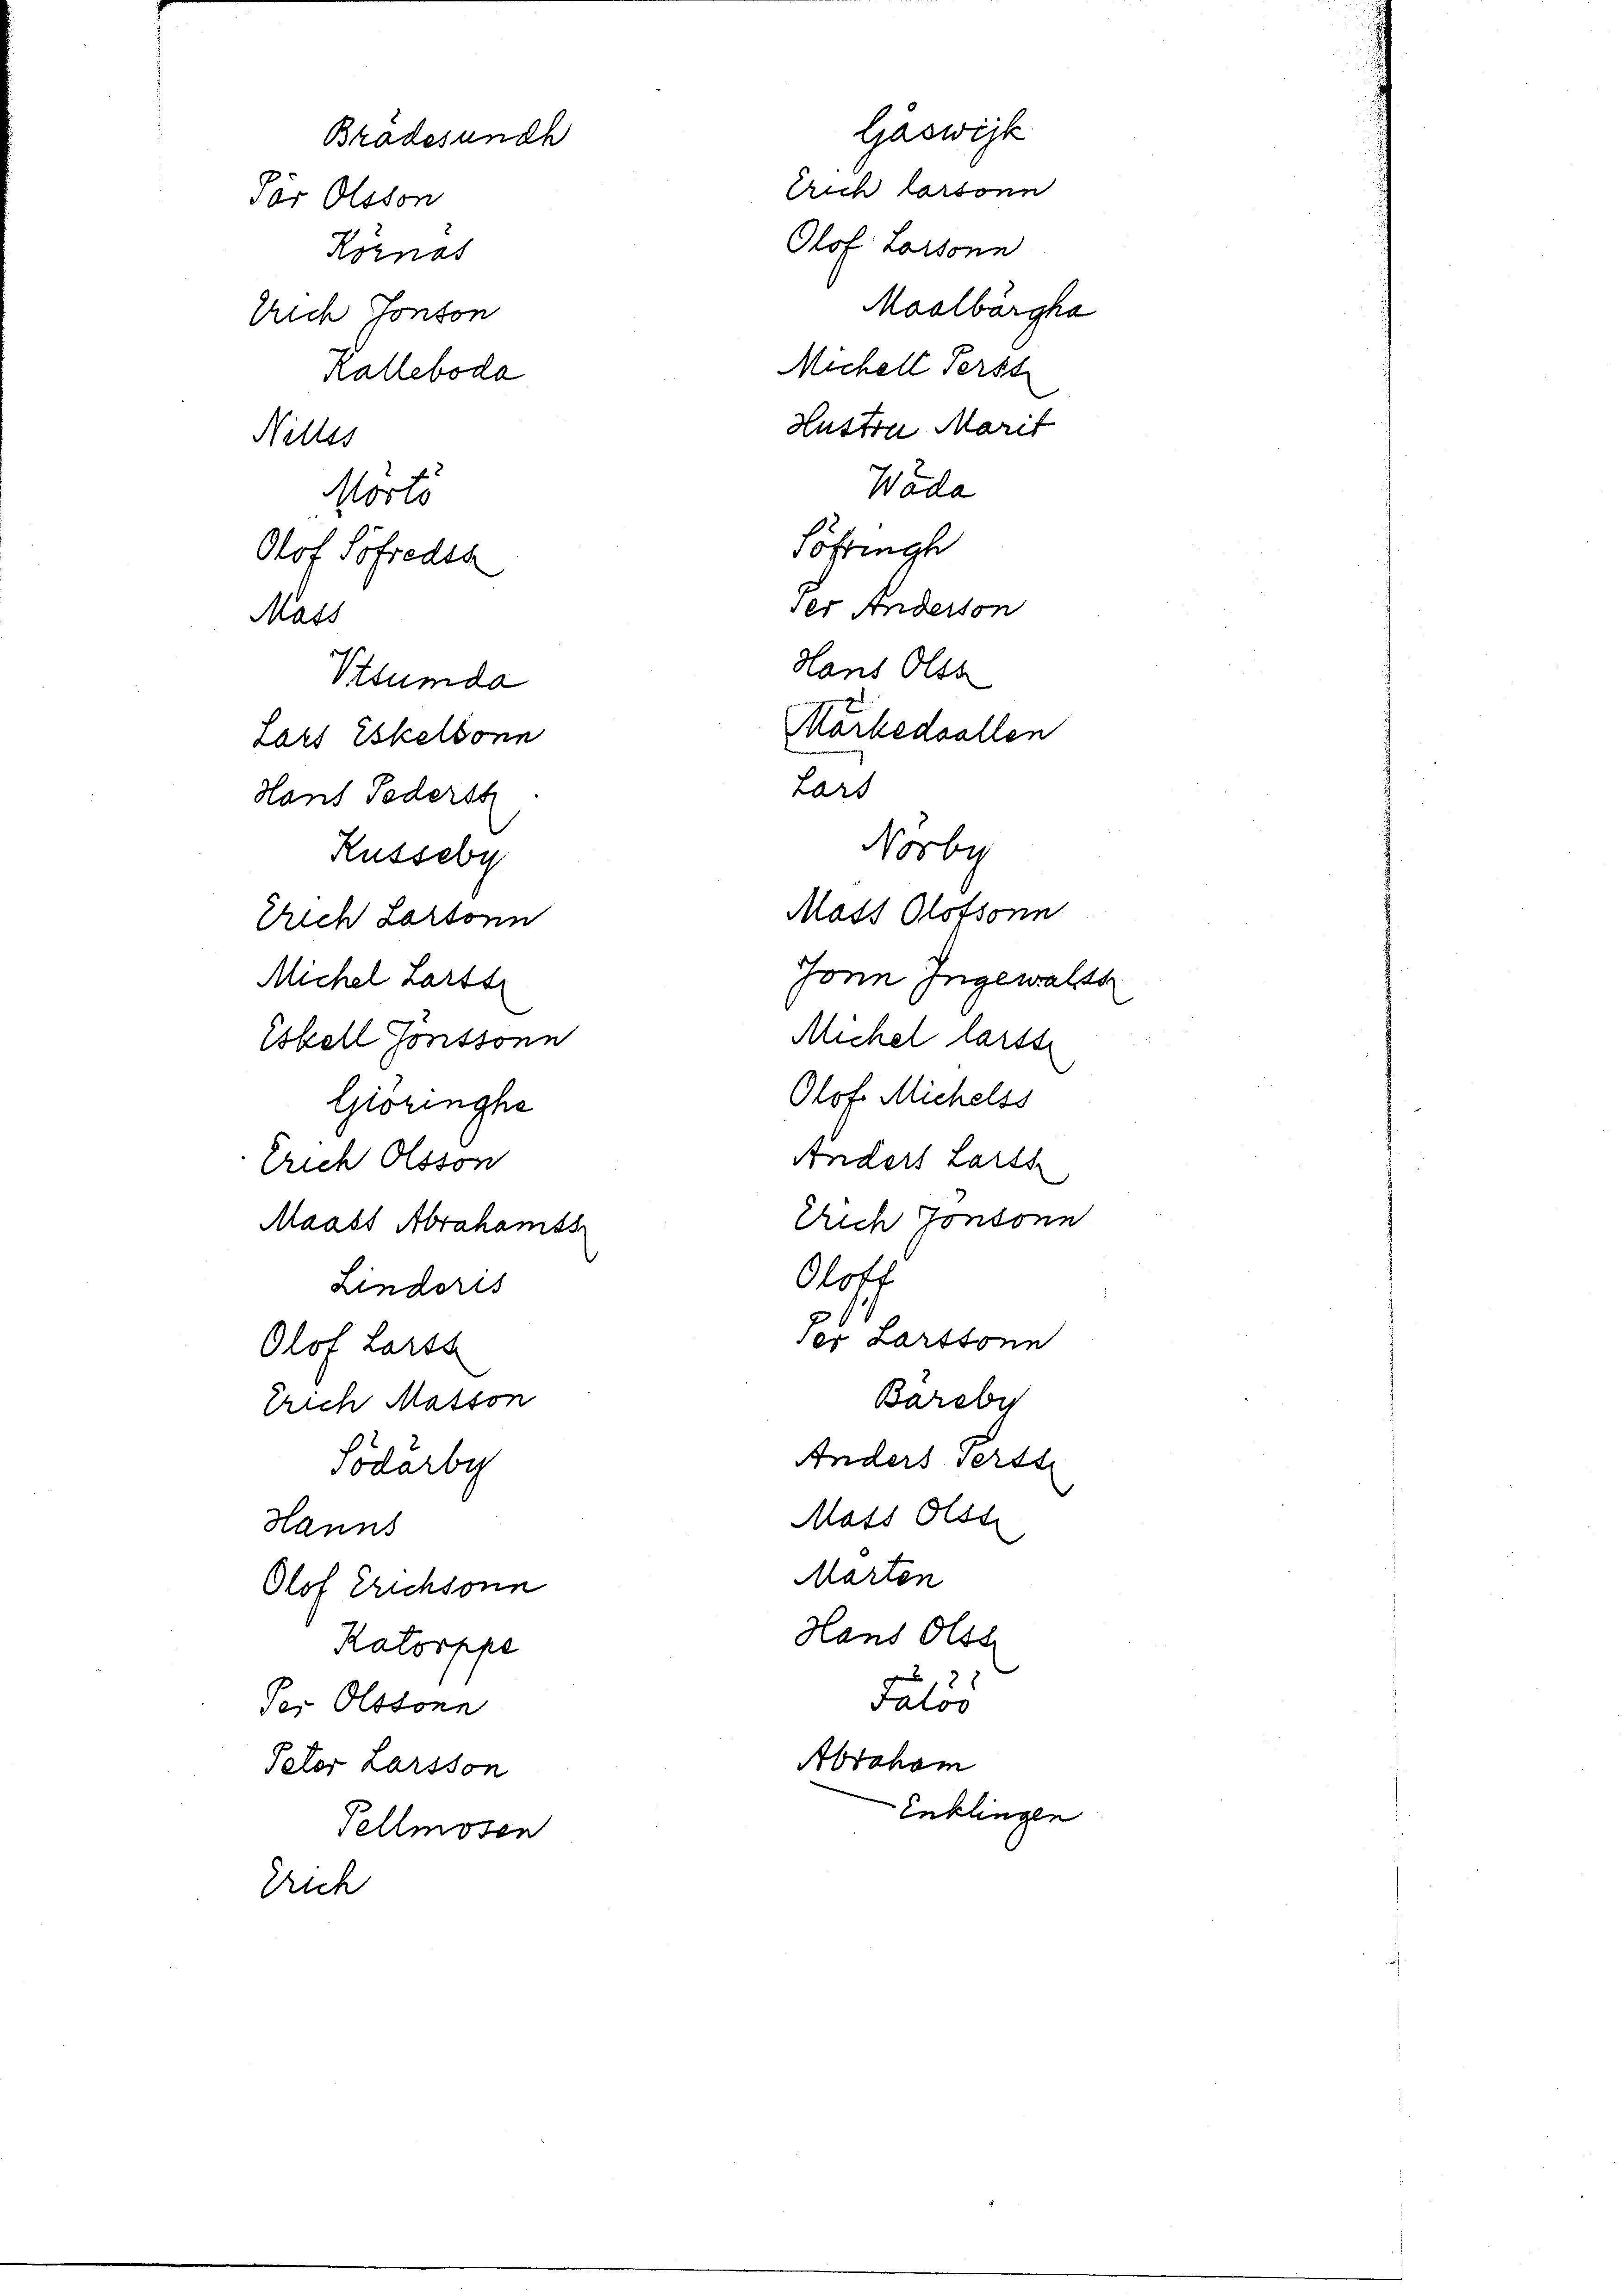 Brädesundh
Pär Olsson
Körnäs
Erich Jonson
Kalleboda
Nillss
Mörtö
Olof Söfredss
Mass
Vtsumda
Lars Eskelsonn
Hans Pederss
Kusseby
Erich Larsonn
Michel Larss
Eskell Jönssonn
Giöringhe
Erich Olsson
Maass Abrahamss
Linderis
Olof Larss
Erich Masson
Södärby
Hanns
Olof Erichsonn
Katorppe
Per Olssonn
Peter Larsson
Pellmosen
Erich
Gåswijk
Erich larsonn
Olof Larsonn
Maalbärgha
Michell Perss
Hustru Marit
Wäda
Söfringh
Per Anderson
Hans Olss
Märkedaallen
Lars
Nörby
Mass Olofsonn
Jonn Ingewalss
Michel larss
Olof Michelss
Anders Larss
Erich Jönsonn
Oloff
Per Larssonn
Bäreby
Anders Perss
Mass Olss
Mårten
Hans Olss
Fälöö
Abraham
Enklingen